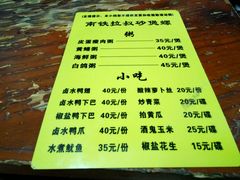 南铁拉叔砂煲螺
粥
皮蛋瘦肉粥 35元/煲
黄鳝粥 40元/煲
海鲜粥 40元/煲
白鸽粥 45元/煲
小吃
卤水鸭翅 40元/份 酸辣萝卜丝 20元/份
卤水鸭下巴 40元/份 炒青菜 20元/碟
椒盐鸭下巴 40元/份 拍黄瓜 20元/碟
卤水鸭爪 40元/份 酒鬼玉米 25元/碟
水煮鱿鱼 35元/份 椒盐花生 15元/碟